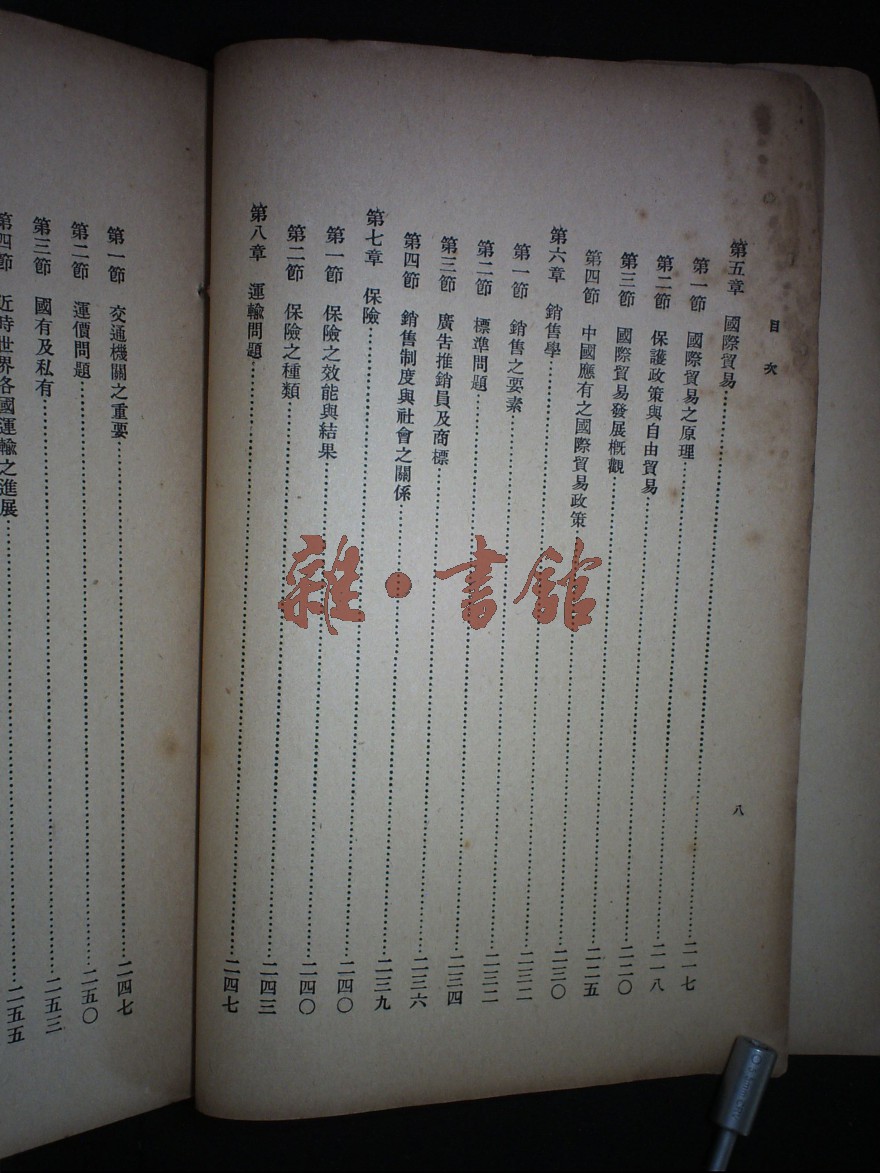 目次
八
第五章 國際貿易……二一七
第一節 國際貿易之原理……二一八
第二節 保護政策與自由貿易……二二〇
第三節 國際貿易發展概觀……二二五
第四節 中國應有之國際貿易政策……二三〇
第六章 銷售學……二三二
第一節 銷售之要素……二三二
第二節 標準問題……二三四
第三節 廣告推銷員及商標……二三六
第四節 銷售制度與社會之關係……二三九
第七章 保險……二四〇
第一節 保險之效能與結果……二四〇
第二節 保險之種類……二四三
第八章 運輸問題……二四七
第一節 交通機關之重要……二四七
第二節 運價問題……二五〇
第三節 國有及私有……二五三
第四節 近時世界各國運輸之進展……二五五
雜·書館